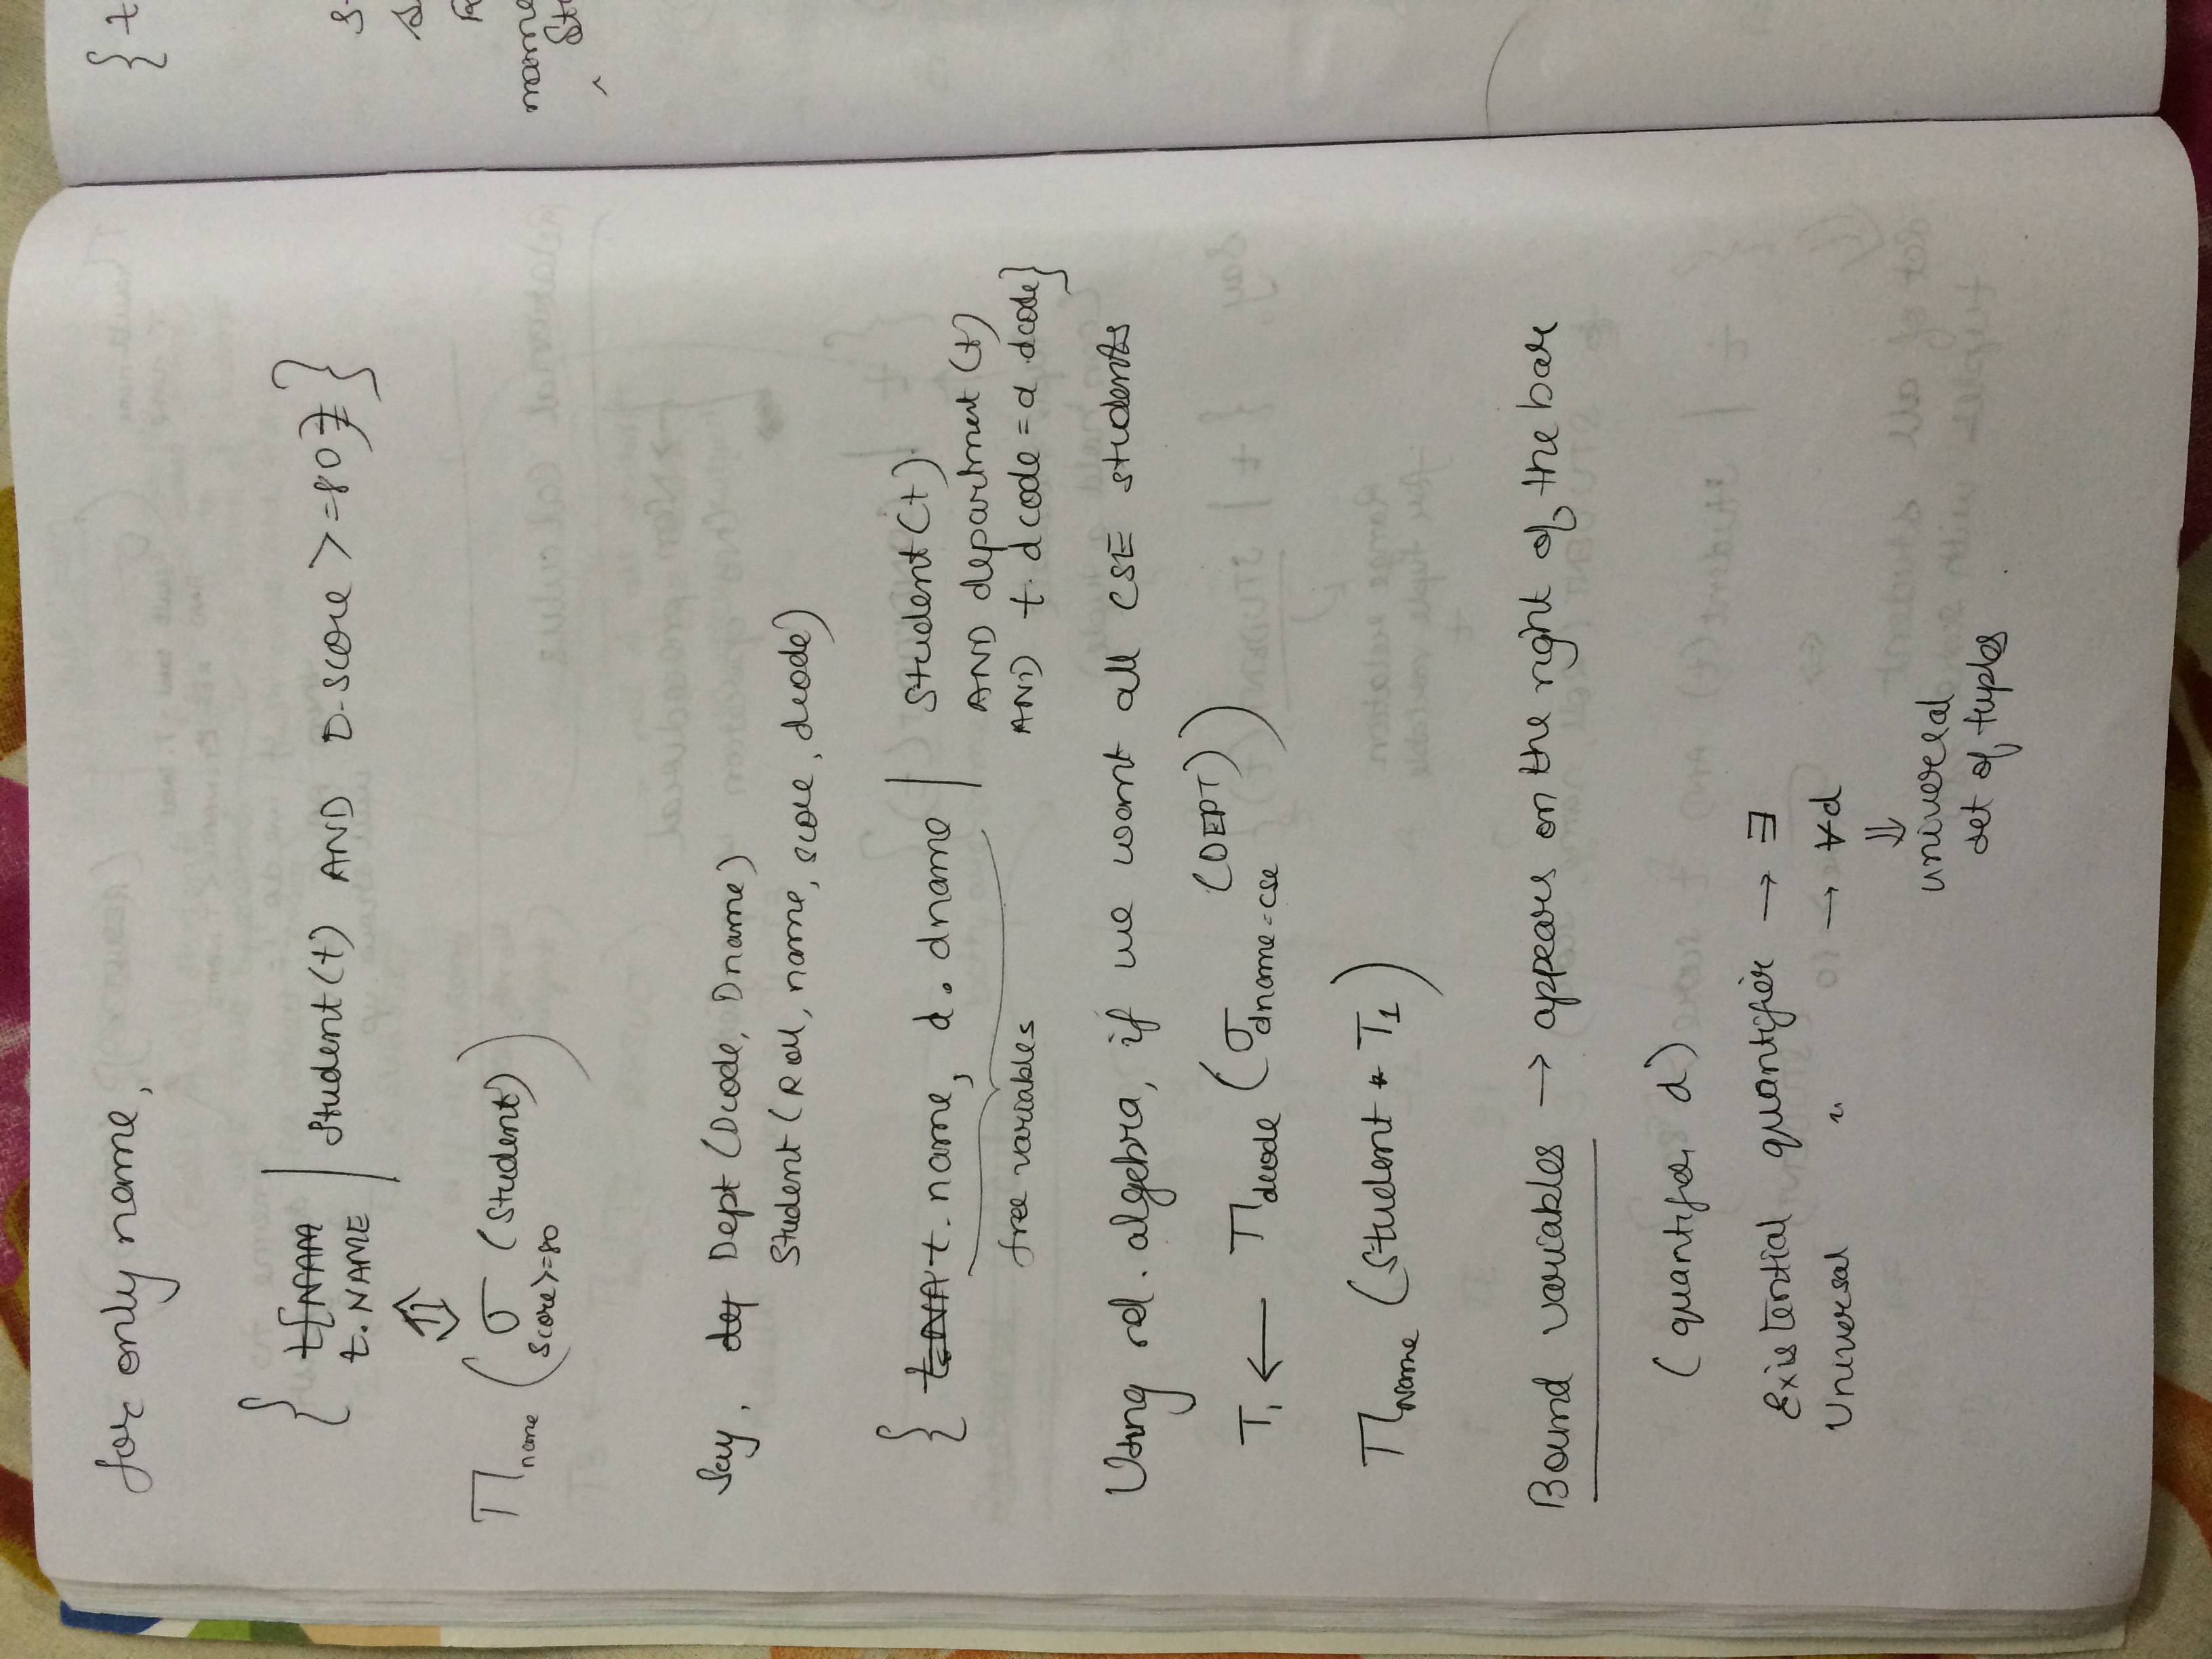 for only name,
{ t.NAME | Student(t) AND D.Score >= 80 }
⇕
π name ( σ score>=80 (Student) )
Say, Dept (Dcode, Dname)
Student (Roll, name, score, dcode)
{ t.name, d.dname | Student(t)
AND department(t)
free variables
AND t.dcode = d.dcode}
Using rel. algebra, if we want all CSE students
T1 ← π dcode ( σ dname=cse (DEPT) )
π Name (Student * T1)
Bound variables → appears on the right of the bar
(quantified)
Existential quantifier → ∃
Universal " → ∀d
⇓
universal
set of tuples
{ t
name